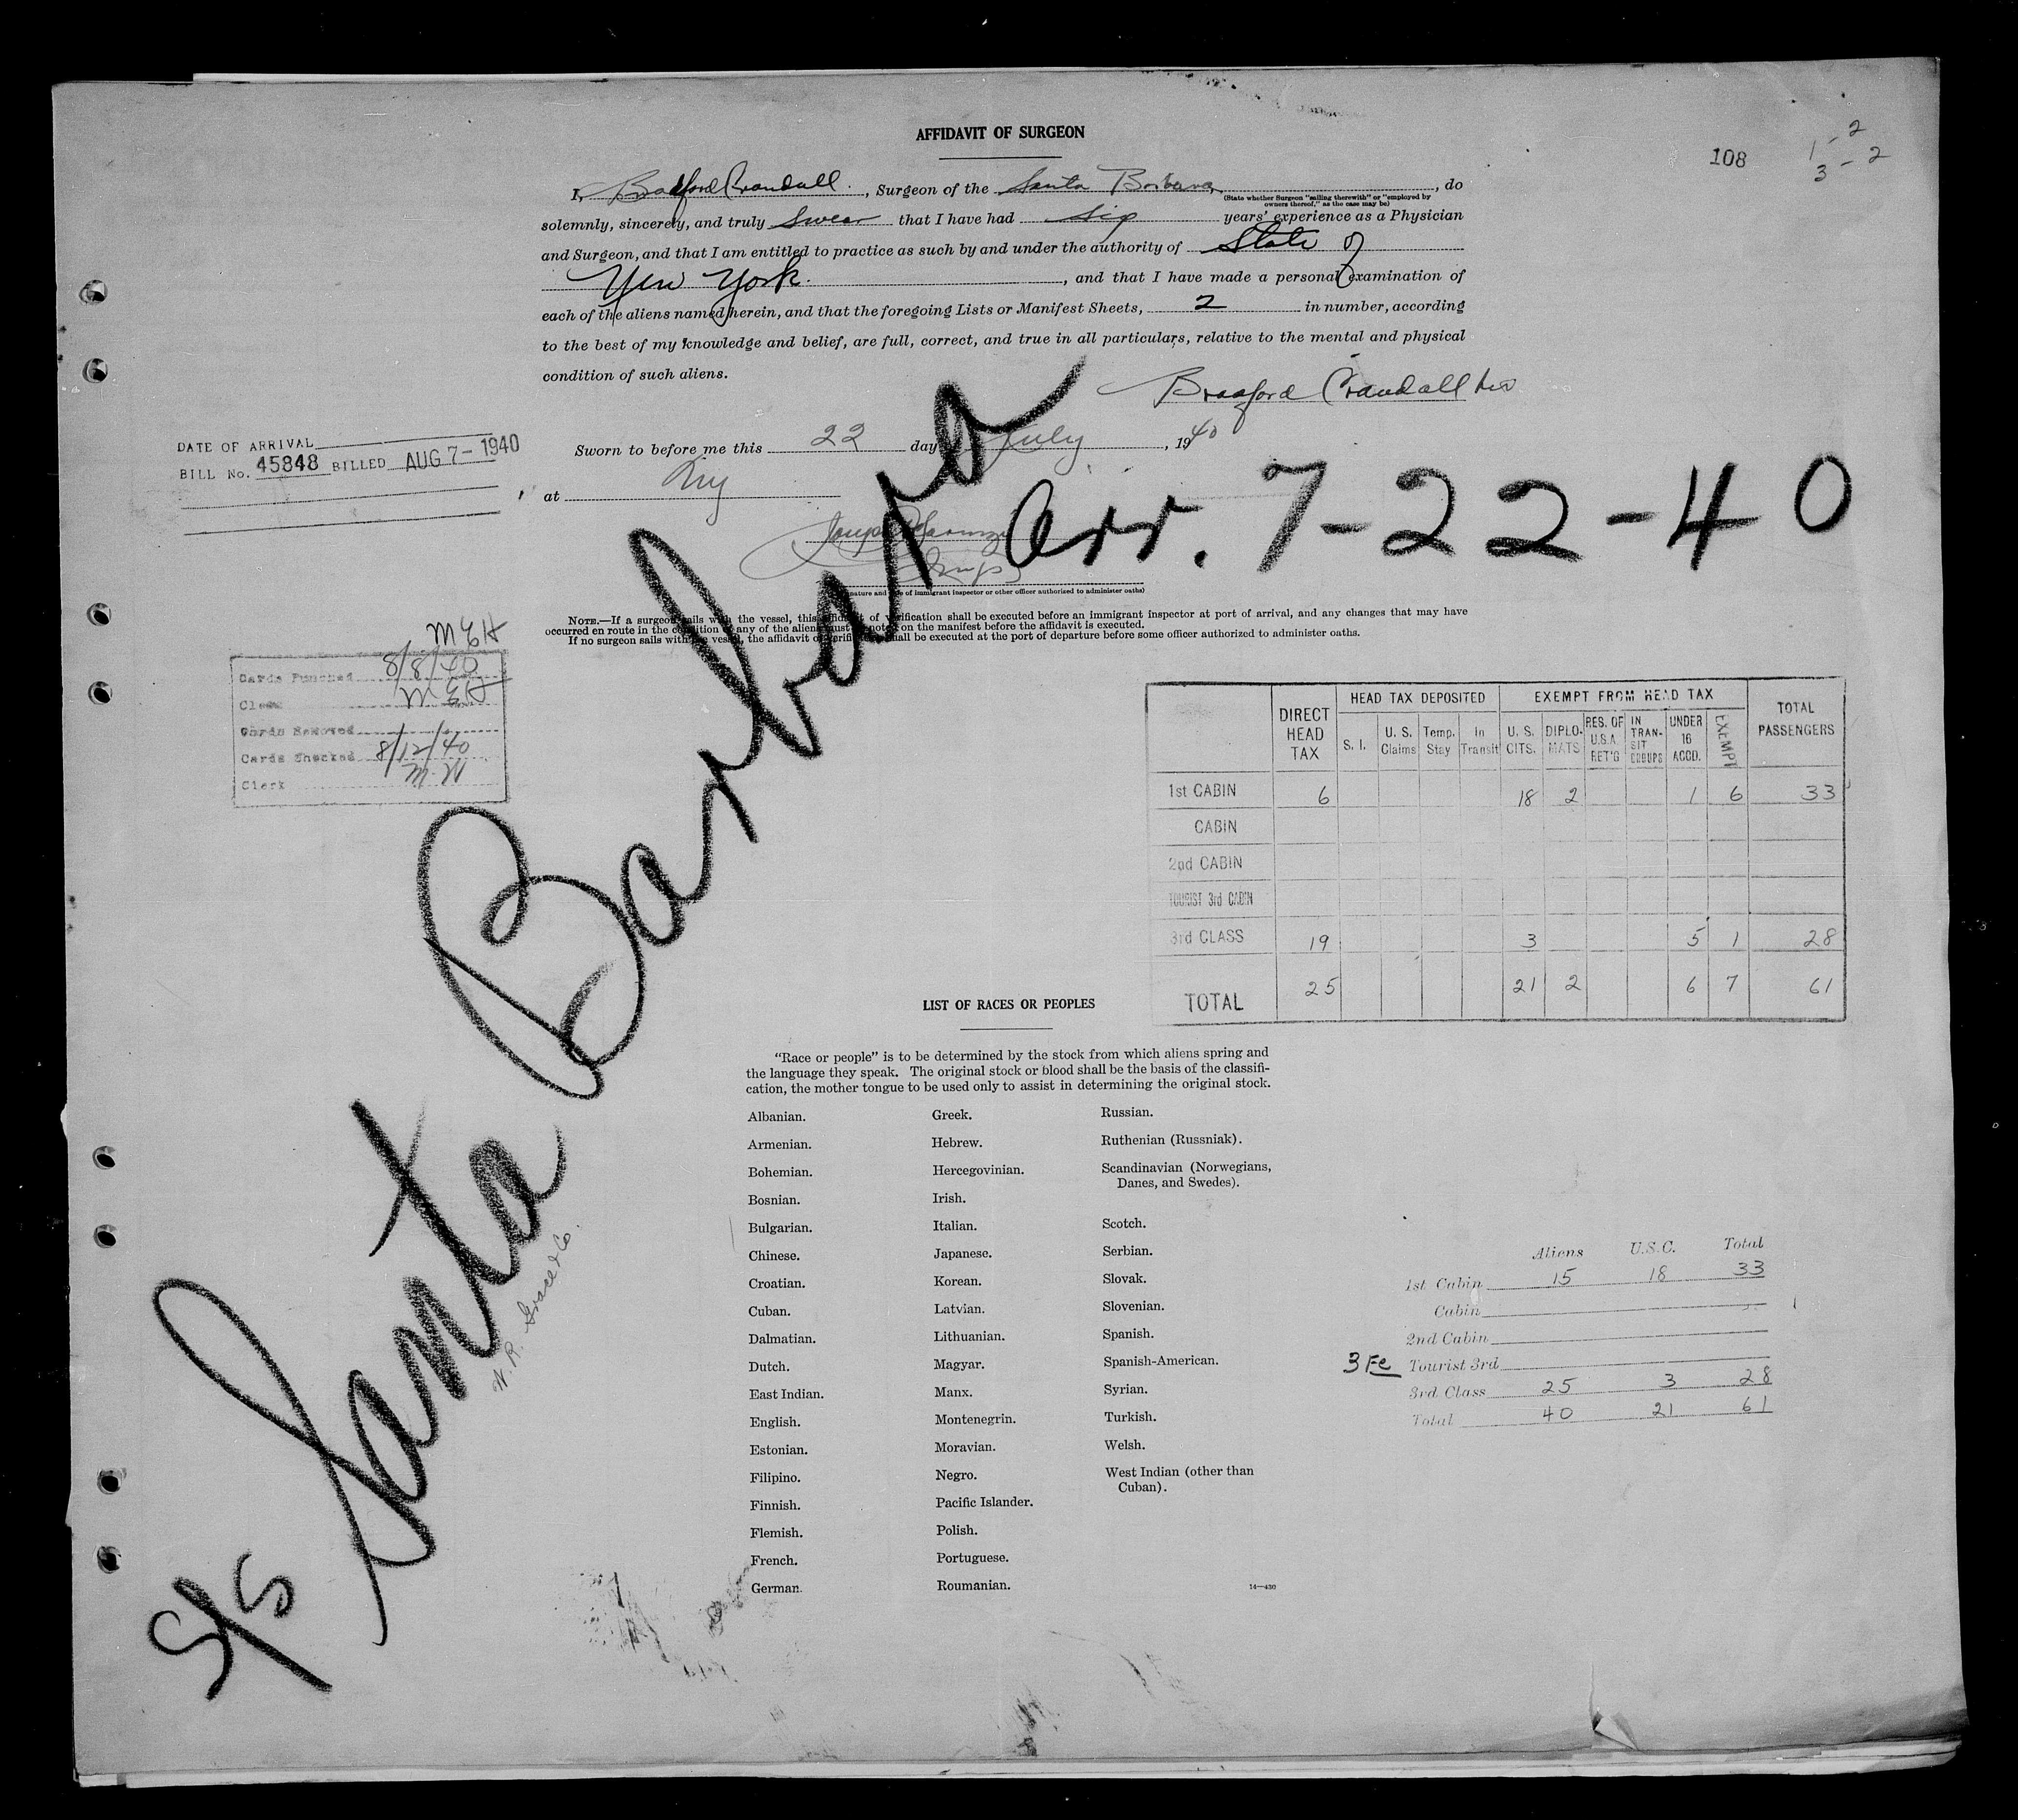 AFFIDAVIT OF SURGEON
108
1 - 2
3 - 2
I, Bradford Crandall, Surgeon of the Santa Barbara, do
(State whether Surgeon "sailing therewith" or "employed by
owners thereof," as the case may be)
solemnly, sincerely, and truly swear that I have had six years' experience as a Physician
and Surgeon, and that I am entitled to practice as such by and under the authority of State of
New York., and that I have made a personal examination of
each of the aliens named herein, and that the foregoing Lists or Manifest Sheets, 2 in number, according
to the best of my knowledge and belief, are full, correct, and true in all particulars, relative to the mental and physical
condition of such aliens.
Bradford Crandall MD
DATE OF ARRIVAL
BILL No. 45848 BILLED AUG 7- 1940
Sworn to before me this 22 day July, 1940
at NY
Arr. 7-22-40
Insp
(Signature and title of immigrant inspector or other officer authorized to administer oaths)
NOTE.—If a surgeon sails with the vessel, this affidavit of verification shall be executed before an immigrant inspector at port of arrival, and any changes that may have
occurred en route in the condition of any of the aliens must be noted on the manifest before the affidavit is executed.
If no surgeon sails with the vessel, the affidavit of verification shall be executed at the port of departure before some officer authorized to administer oaths.
MEH
Cards Punched 8/8/40
Clerk MEH
Cards Removed
Cards Checked 8/12/40
Clerk M.W
S/S Santa Barbara
W. R. Grace & Co.
DIRECT HEAD TAX
HEAD TAX DEPOSITED
EXEMPT FROM HEAD TAX
TOTAL PASSENGERS
S. I. U. S. Claims Temp. Stay In Transit U. S. CITS. DIPLOMATS RES. OF U.S.A. RET'G IN TRANSIT UNDER 16 ACCD. EXEMPT
1st CABIN 6 18 2 1 6 33
CABIN
2nd CABIN
TOURIST 3rd CABIN
3rd CLASS 19 3 5 1 28
TOTAL 25 21 2 6 7 61
LIST OF RACES OR PEOPLES
"Race or people" is to be determined by the stock from which aliens spring and
the language they speak. The original stock or blood shall be the basis of the classifi-
cation, the mother tongue to be used only to assist in determining the original stock.
Albanian.
Armenian.
Bohemian.
Bosnian.
Bulgarian.
Chinese.
Croatian.
Cuban.
Dalmatian.
Dutch.
East Indian.
English.
Estonian.
Filipino.
Finnish.
Flemish.
French.
German.
Greek.
Hebrew.
Hercegovinian.
Irish.
Italian.
Japanese.
Korean.
Latvian.
Lithuanian.
Magyar.
Manx.
Montenegrin.
Moravian.
Negro.
Pacific Islander.
Polish.
Portuguese.
Roumanian.
Russian.
Ruthenian (Russniak).
Scandinavian (Norwegians,
Danes, and Swedes).
Scotch.
Serbian.
Slovak.
Slovenian.
Spanish.
Spanish-American.
Syrian.
Turkish.
Welsh.
West Indian (other than
Cuban).
14—430
Aliens U.S.C. Total
1st Cabin 15 18 33
Cabin
2nd Cabin
3 Fe Tourist 3rd
3rd Class 25 3 28
Total 40 21 61